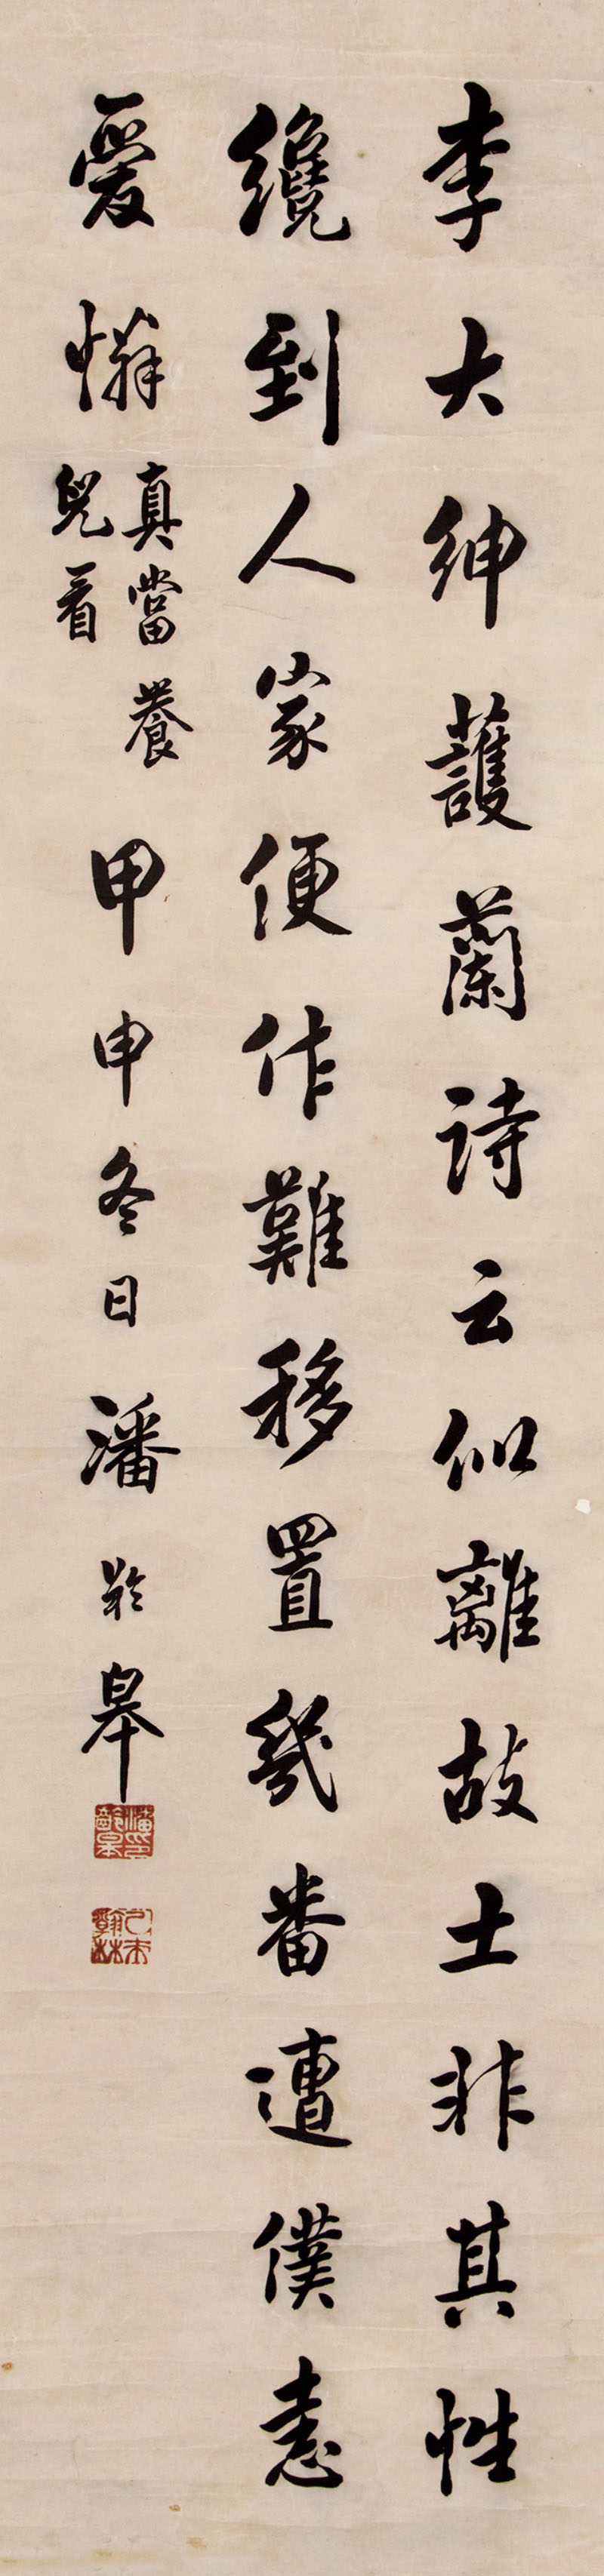 李大紳護蘭詩云似離故土非其性
纔到人家便作難移置幾番遭僕恚
愛憐真當養
兒看
甲申冬日潘齡皋
潘齡皋印
乙未翰林